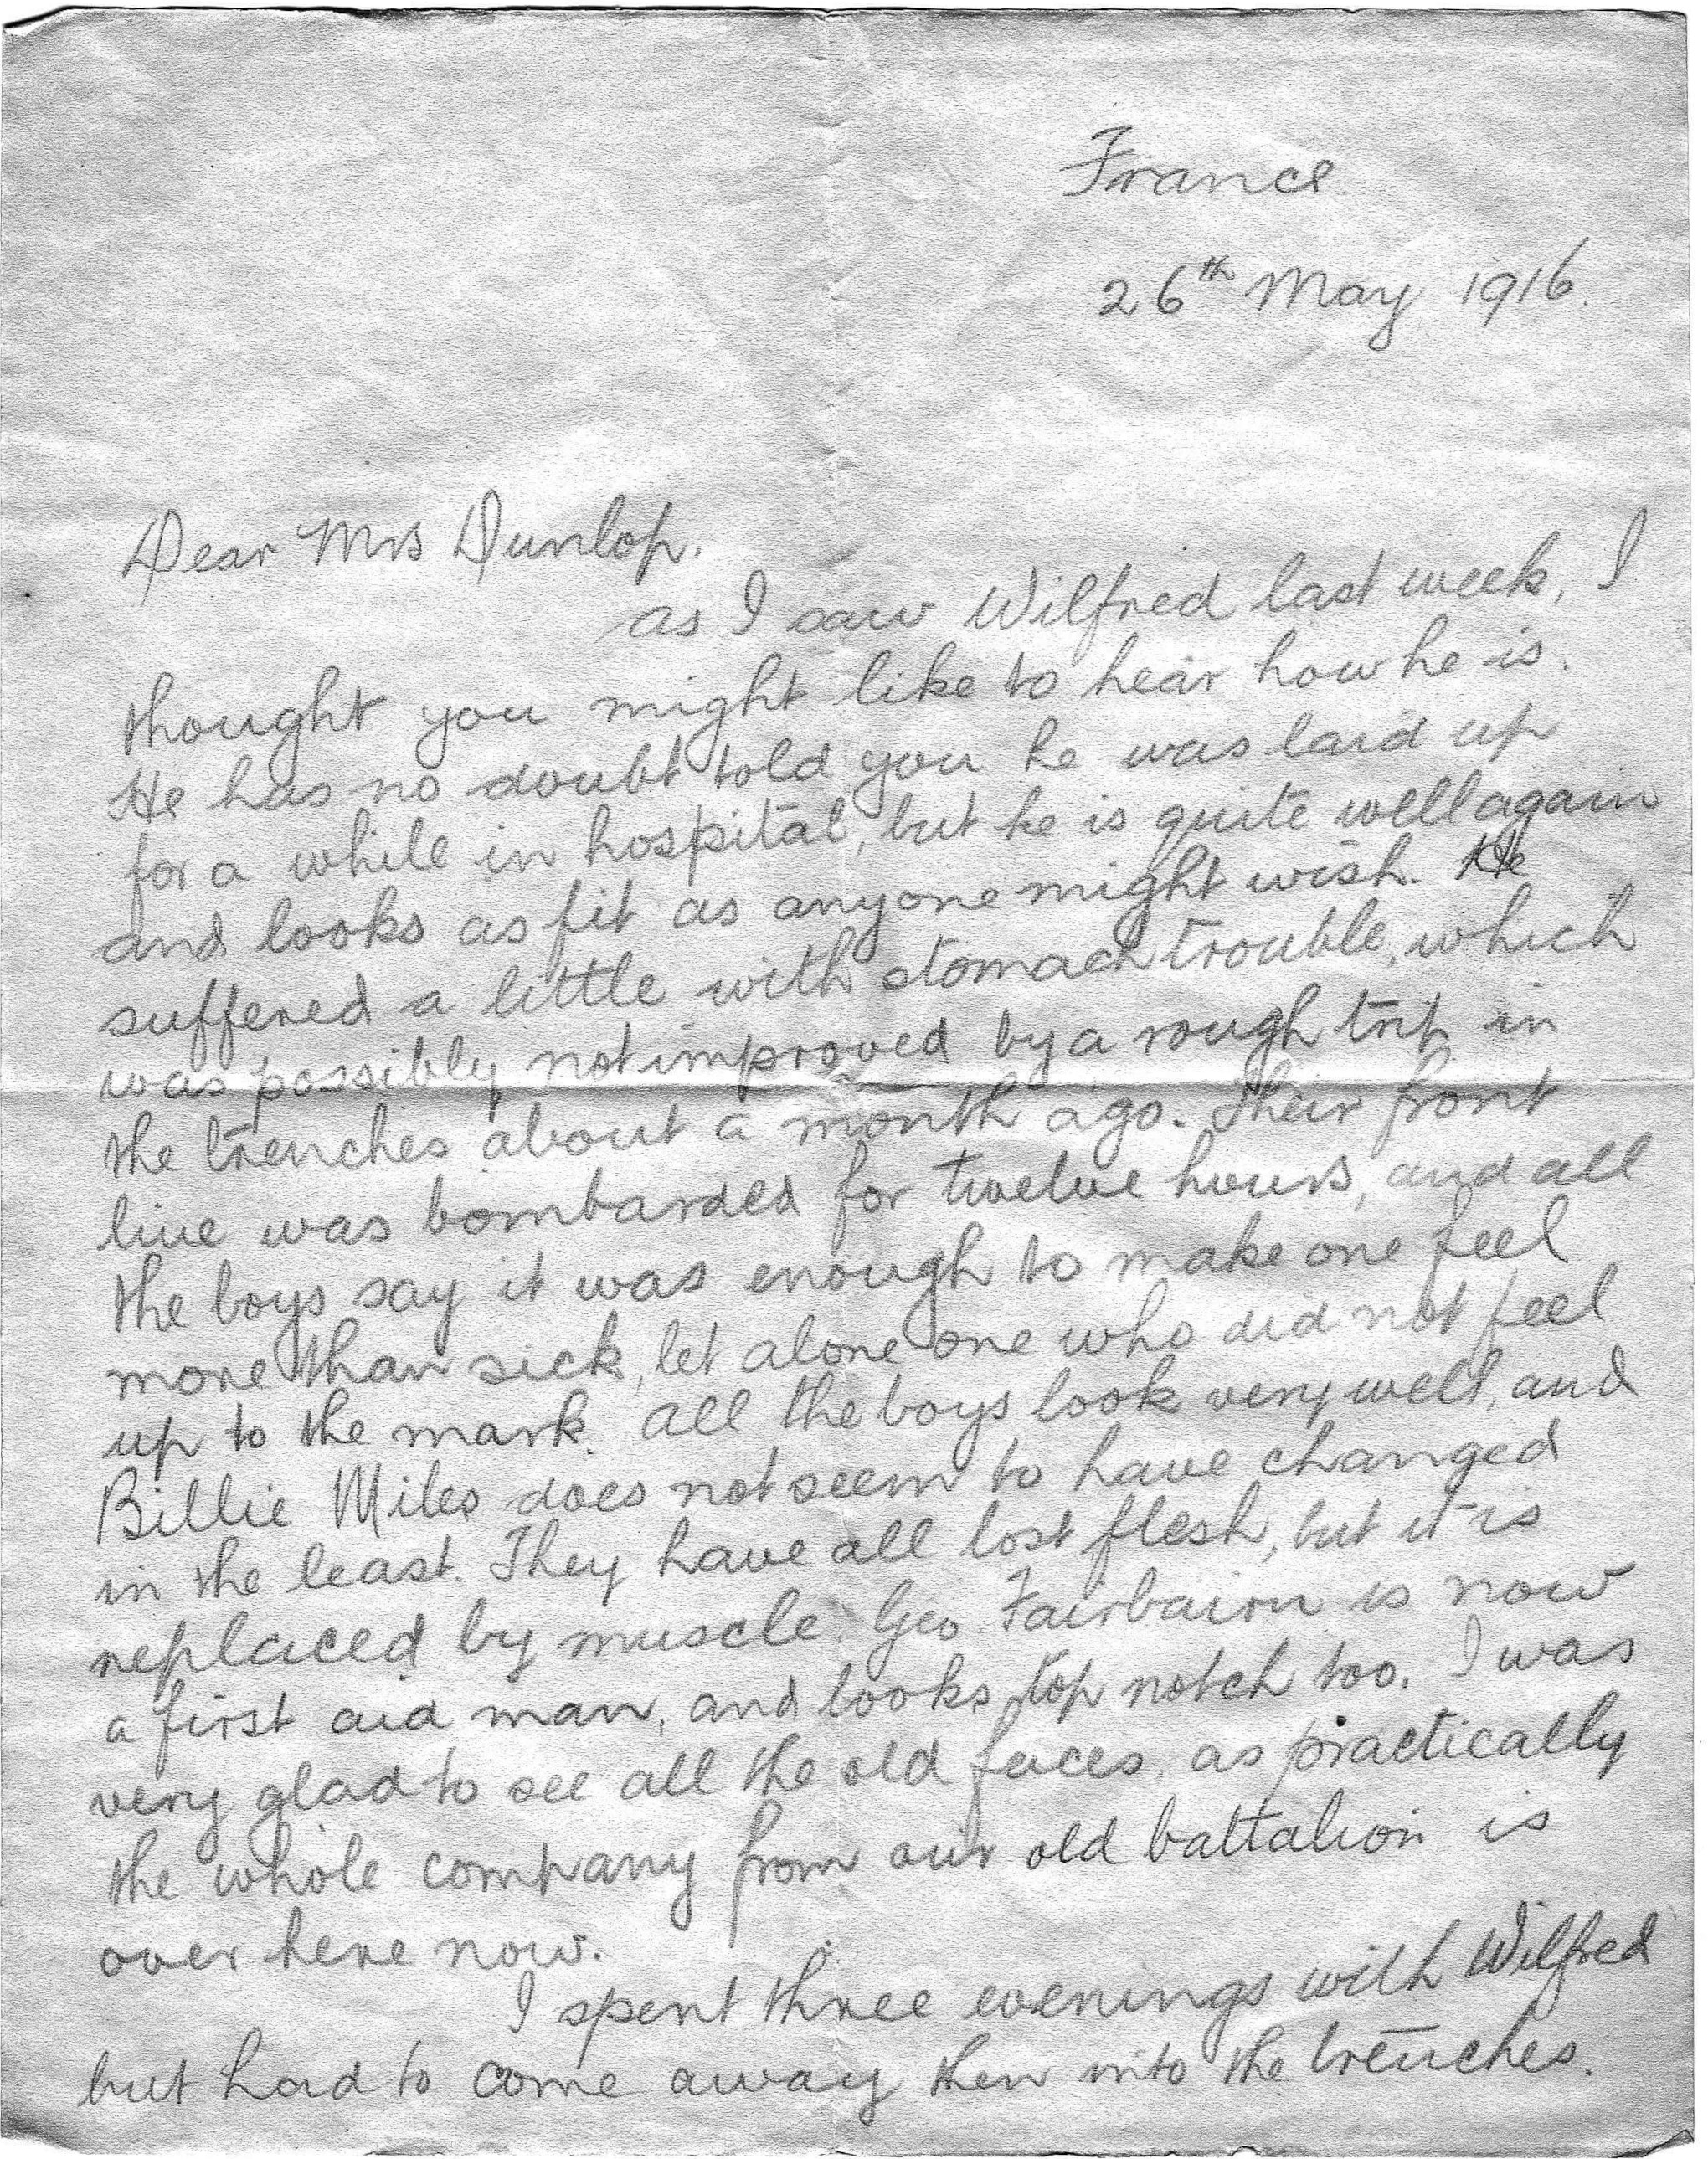 France.
26th May 1916.
Dear Mrs Dunlop.
as I saw Wilfred last week, I
thought you might like to hear how he is.
He has no doubt told you he was laid up
for a while in hospital, but he is quite well again
and looks as fit as anyone might wish. He
suffered a little with stomach trouble, which
was possibly not improved by a rough trip in
the trenches about a month ago. Their front
line was bombarded for twelve hours, and all
the boys say it was enough to make one feel
more than sick, let alone one who did not feel
up to the mark. All the boys look very well, and
Billie Miles does not seem to have changed
in the least. They have all lost flesh, but it is
replaced by muscle. Geo. Fairbairn is now
a first aid man, and looks top notch too. I was
very glad to see all the old faces, as practically
the whole company from our old battalion is
over here now.
I spent three evenings with Wilfred
but had to come away then into the trenches.